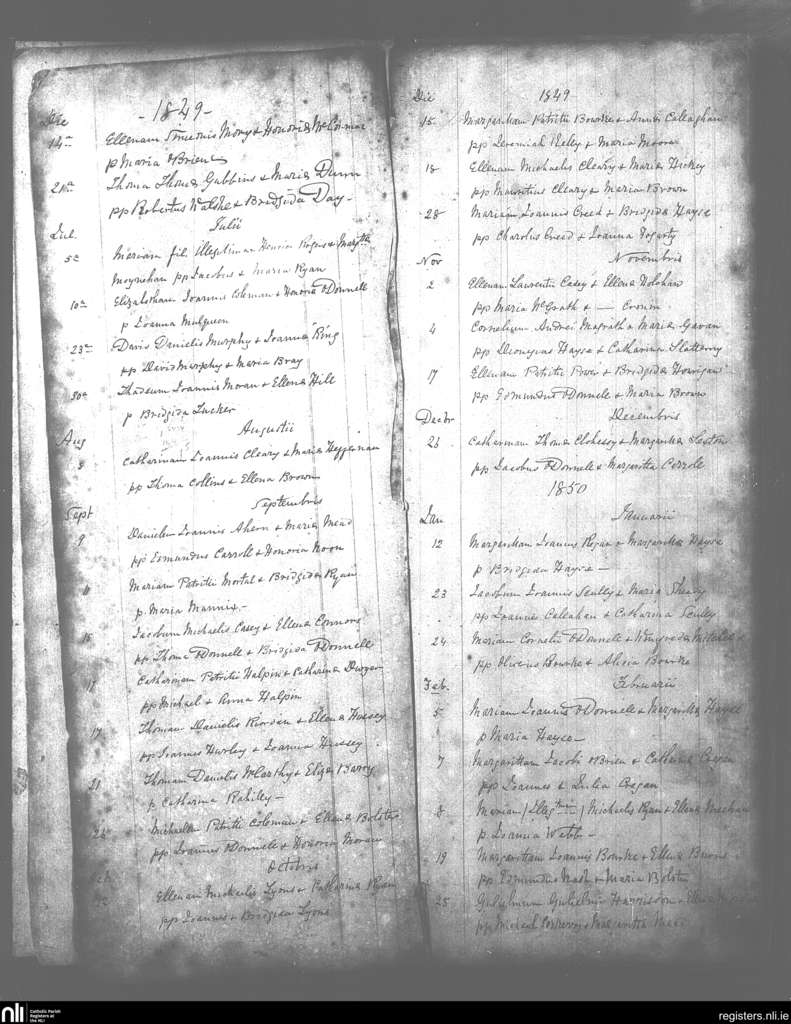 Die
-1849-
14a
Ellenam & Honoria McCormac
p Maria OBrien
Thoma Thoma Gubbins & Maria Dunn
pp Robertus Walshe & Bridgida Day-
Jul.
Julii
5a
fil. Illegitima &
Moynehan pp Jacobus & Maria Ryan
10a
Joannis Coleman & Honoria ODonnell
p Joanna Mulqueen
23a
Davis Danielis Murphy & Joanna King
pp David Murphy & Maria Bray
30a
Thadeum Joannis Moran & Ellena Hill
p Bridgida Tucker
Aug
Augustii
Catharinam Joannis Cleary & Maria Heffernan
pp Thoma Collins & Ellena Brown
Sept
Septembris
9
Danielem Joannis Ahern & Maria Mead
pp Edmundus Carroll & Honoria Noon
11
Mariam Patritii & Bridgida Ryan
p. Maria Mannix-
15
Jacobum Michaelis Casey & Ellena Connors
pp Thoma ODonnell & Bridgida ODonnell
Catharinam Patritii Halpin & Catharina Dwyer
pp Michael & Anna Halpin
17
Thomam Danielis Riordan & Ellena Hussey
pp Joannes Hurley & Joanna Hussey
21
Thomam Danielis McCarthy & Eliza Barry
p Catharina Rahiley-
Michaelem Patritii Coleman & Ellena Bolster
pp Joannes ODonnell & Honoria Moran
Octobris
Ellenam Michaelis Lyons & Catharina Ryan
pp Joannes & Bridgida Lyons
Die
1849
15
Margaritam Patritii Bourke & Anna Callaghan
pp Jeremiah Kelly & Maria Moore
18
Ellenam Michaelis Cleary & Maria Hickey
pp Mauritius Cleary & Maria Brown
28
Mariam Joannis Creed & Bridgida Hayse
pp Charolus Creed & Joanna Fogarty
Nov
Novembris
2
Ellenam Laurentii Casey & Ellena Holohan
pp Maria McGrath & — Cronin
4
Cornelium Andrei Magrath & Maria Gavan
pp Dionysius Hayse & Catharina Slattery
17
Ellenam Patritii Power & Bridgida Hourigan
pp Edmundus ODonnell & Maria Brown
Decbr
Decembris
26
Catharinam Thoma Clohessy & Margarita Sexton
pp Jacobus ODonnell & Margarita Carroll
1850
Jan
Januarii
12
Margaritam Joannis Regan & Margarita Hayse
p Bridgida Hayse —
23
Jacobum Joannis Scully & Maria Sheedy
pp Joannes Calahan & Catharina Scully
24
Mariam Cornelii ODonnell &
pp Oliverus Bourke & Alicia Bourke
Feb.
Februarii
5
Mariam Joannis ODonnell & Margarita Hayse
p Maria Hayse-
7
Margaritam Jacobi OBrien & Catharina Cregan
pp Joannes & Julia Cregan
8
Mariam Michaelis Ryan & Ellena Meehan
p. Joanna Webb-
19
Margaritam Joannis Bourke & Ellena Burns
pp Edmundus Nash & Maria Bolster
25
Gulielmum Gulielmi Harrisson & Ellena
pp Michael & Margarita
nli
Catholic Parish
Registers at
the NLI
registers.nli.ie